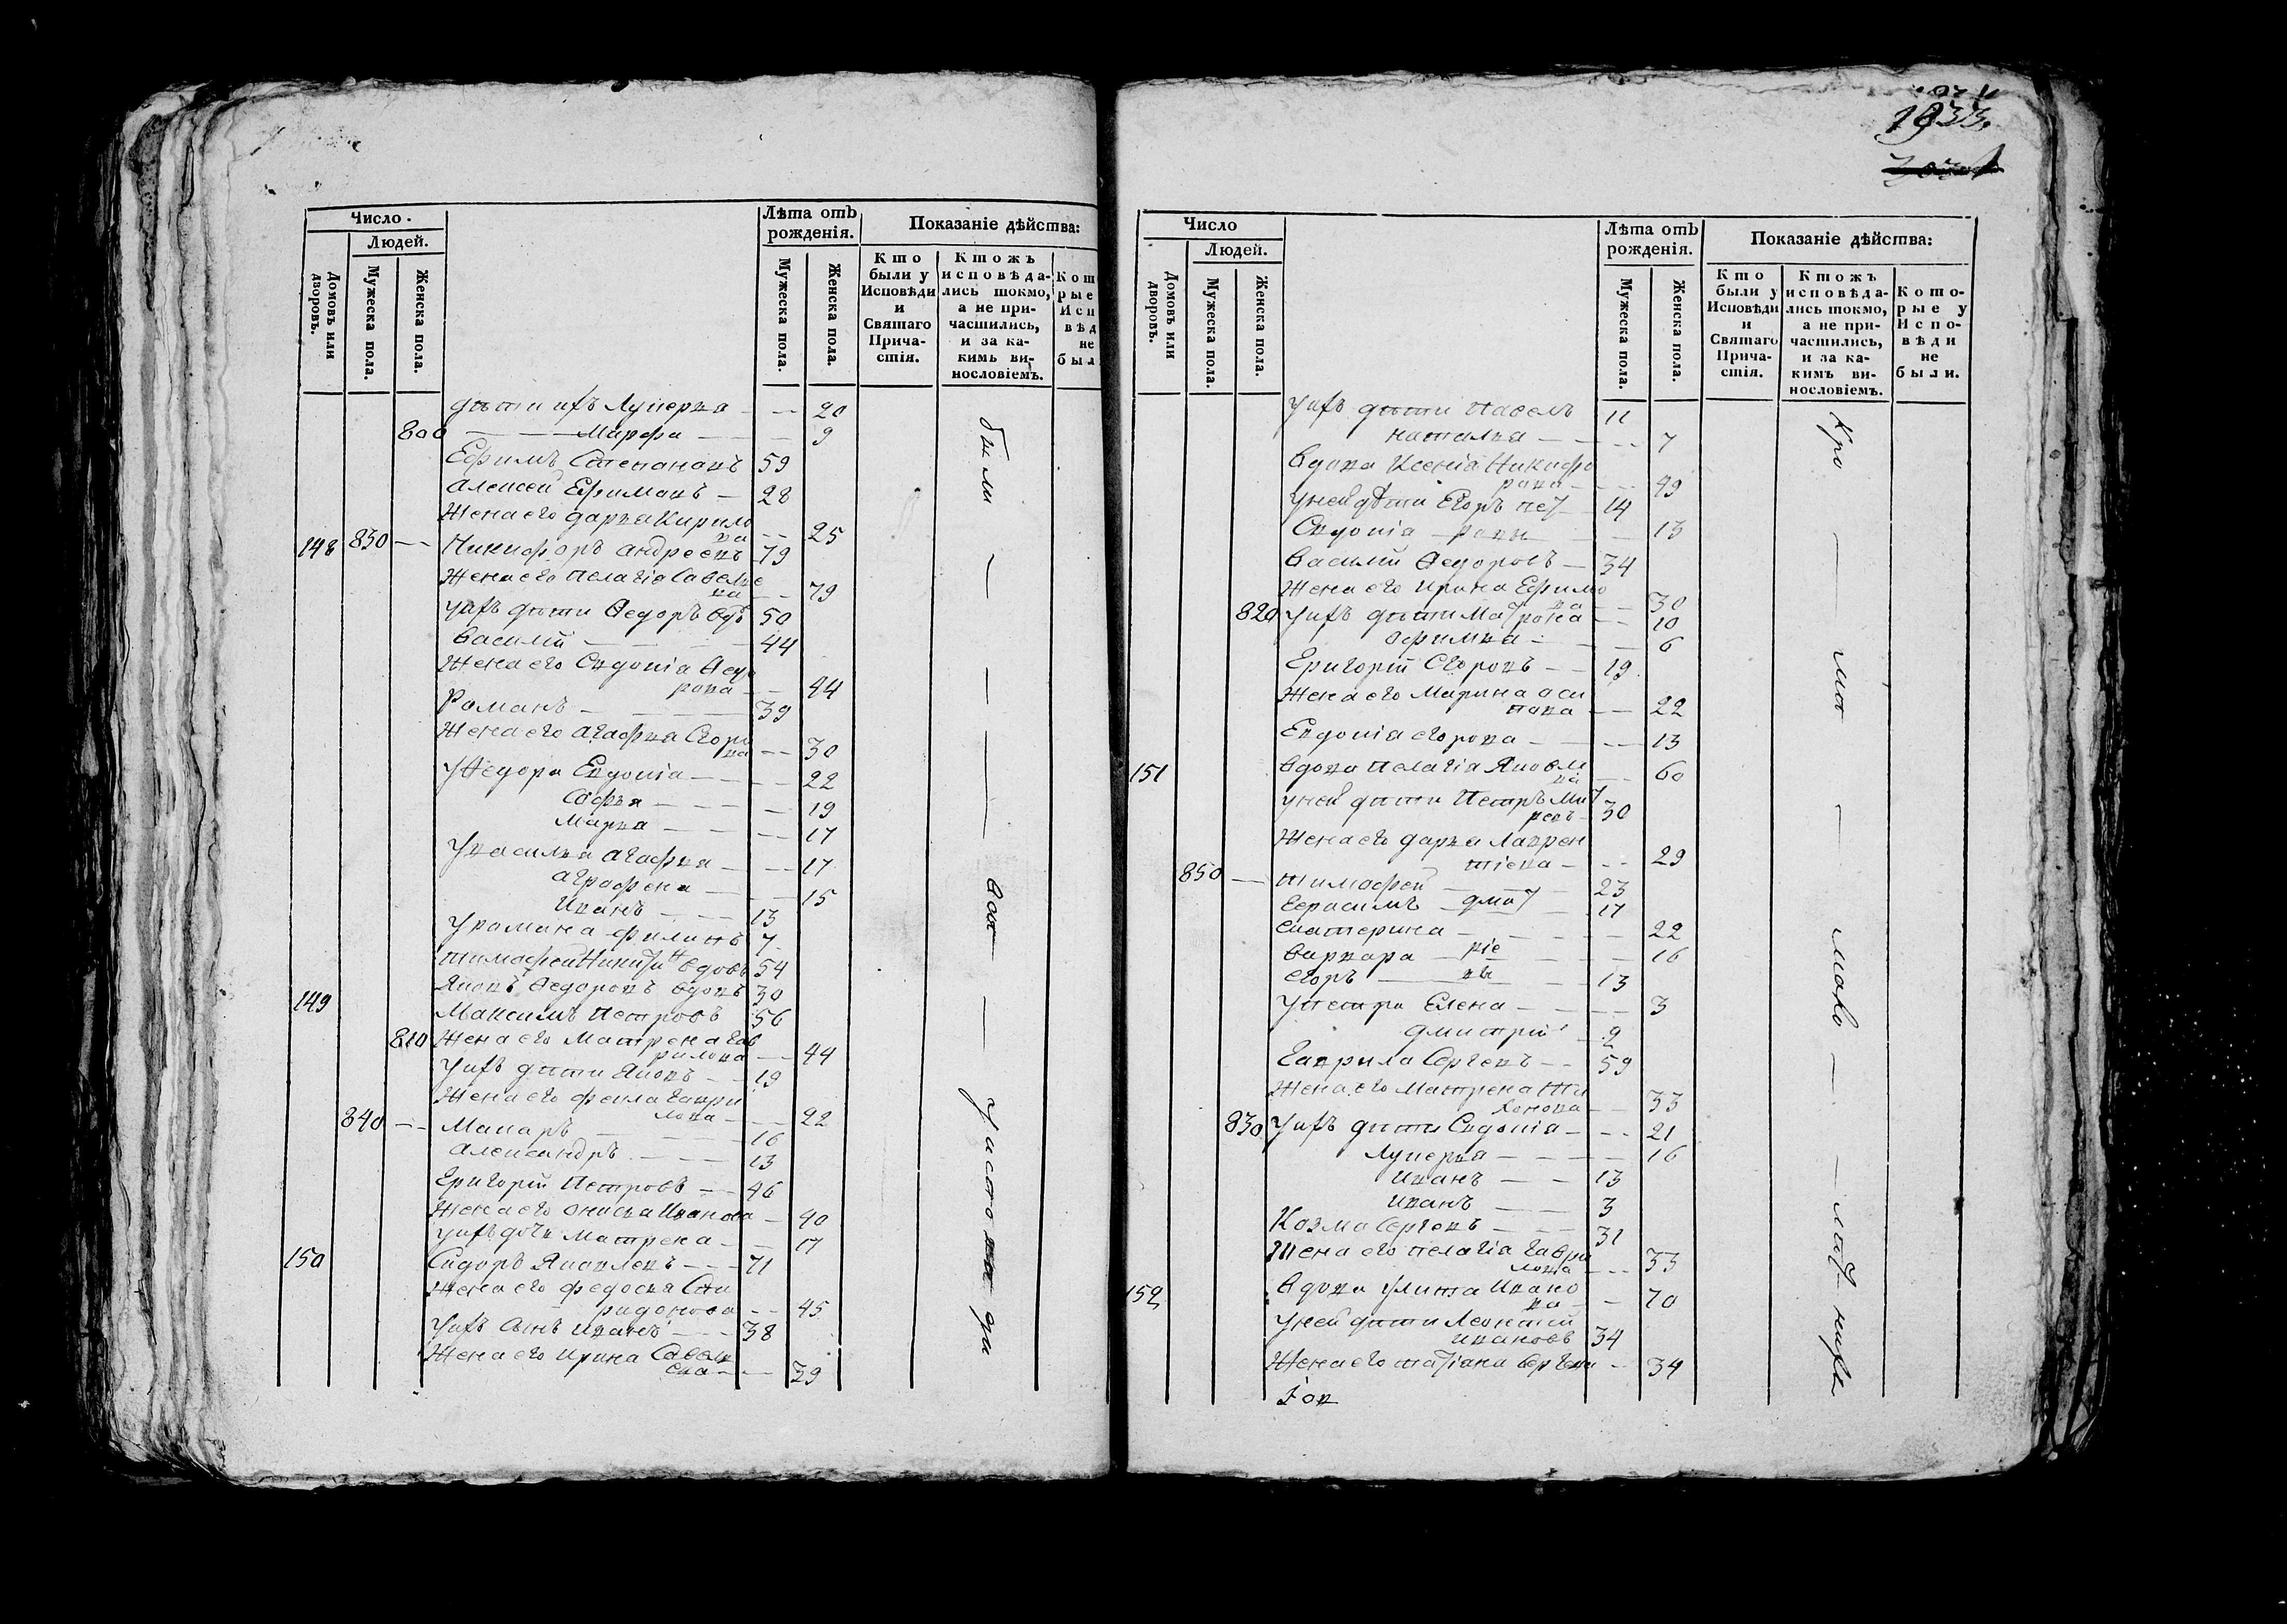 Число.
Людей.
Домовъ или дворовъ.
Мужеска пола.
Женска пола.
Лѣта отъ рожденія.
Мужеска пола.
Женска пола.
Показаніе дѣйства:
Кто были у Исповѣди и Святаго Причастія.
Ктожъ исповѣдались токмо, а не причастились, и за какимъ винословіемъ.
Кот
рые
Исп
вѣд
не
был
дѣти ихъ Лукерва - -- 20
800 - - - Марфа - - 9
Ефимъ Степановъ 59
Алексей Ефимовъ - 28
Жена его Дарва Кирило
ва -- 25
148 830 -- Никифоръ Андреевъ 79
Жена его Пелагіа Савелве
ва - - 79
Уихъ дѣти Ѳедоръ вдъ 50
Василий - - - 44
Жена его Евдокіа Ѳедо
рова - - 44
Романъ - - - 39
Жена его Агафва Егоро
ва -- 30
У Ѳедора Евдокіа - - - 22
Софва - - - 19
Марва - - -- 17
У василва Агафва - - -- 17
Аграфена - - 15
Иванъ - - - 13
У романа Филипъ 7
Тимофей Никиф вдовъ 54
Яковъ Ѳедоровъ вдовъ 30
149 Максимъ Петровъ 56
810 Жена его Матрена Гав
рилова -- 44
Уихъ дѣти Яковъ - - 19
Жена его Фекла Гаври
лова - - 22
840 -- Макаръ - - - 16
Александръ - - - 13
Григорій Петровъ - - 46
Жена его Онисва Иванова - 40
Уихъ дочь Матрена - - 17
150 Сидоръ Яковлевъ - - - 71
Жена его Федосва Спи
ридонова - - 45
Уихъ сынъ Иванъ - - - 38
Жена его Ирина Савелв
ева - - - 39
были - - - - вот - - у исто да
1033.
Число
Людей.
Домовъ или дворовъ.
Мужеска пола.
Женска пола.
Лѣта отъ рожденія.
Мужеска пола.
Женска пола.
Показаніе дѣйства:
Кто были у Исповѣди и Святаго Причастія.
Ктожъ исповѣдались токмо, а не причастились, и за какимъ винословіемъ.
Которые у Исповѣди не были.
Уихъ дѣти Павелъ 11
Наталва - - -- 7
Вдова Ксеніа Никифо
рова - - - 49
Уней дѣти Егоръ пет 14
Евдокіа - ровы - - 13
Василий Ѳедоровъ - 34
Жена его Ирина Ефимо
ва - - 30
820 Уихъ дѣти Матрона - - 10
Офимва - - - 6
Григорій Егоровъ - - 19
Жена его Марина оси
пова - - 22
Евдокіа егорова - - -- 13
151 Вдова Пелагіа Яковле
ва - - 60
Уней дѣти Петръ Мит
ревъ - 30
Жена его Дарва Лаврен
тіева - - - 29
850 - Тимофей - - 23
Герасимъ - Дмит - 17
Екатерина - - - - 22
Варвара - ріе - - 16
Егоръ - вы - - 13
У петра Елена - - - - 3
Дмитрій - 2
Гаврила Сергевъ - - 59
Жена его Матрена Ти
хонова - - 33
830 Уихъ дѣти Евдокіа - - - 21
Лукерва - - - - 16
Иванъ - - 13
Иванъ - - 3
Козма Сергевъ - - - 31
Жена его Пелагіа Гаври
лова - - - 33
152 Вдова Улита Ивано
ва - - 70
Уней дѣти Леонтій
Ивановъ 34
Жена его татіана Сергева - - 34
Іов
Кро - мот - мало - - лот нихъ